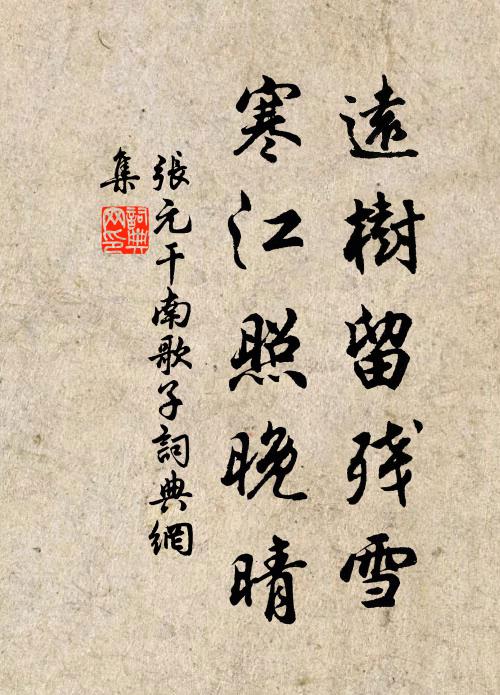 遠樹留残雪
寒江照晚晴
張元干南歌子詞典網
集
詞典網印